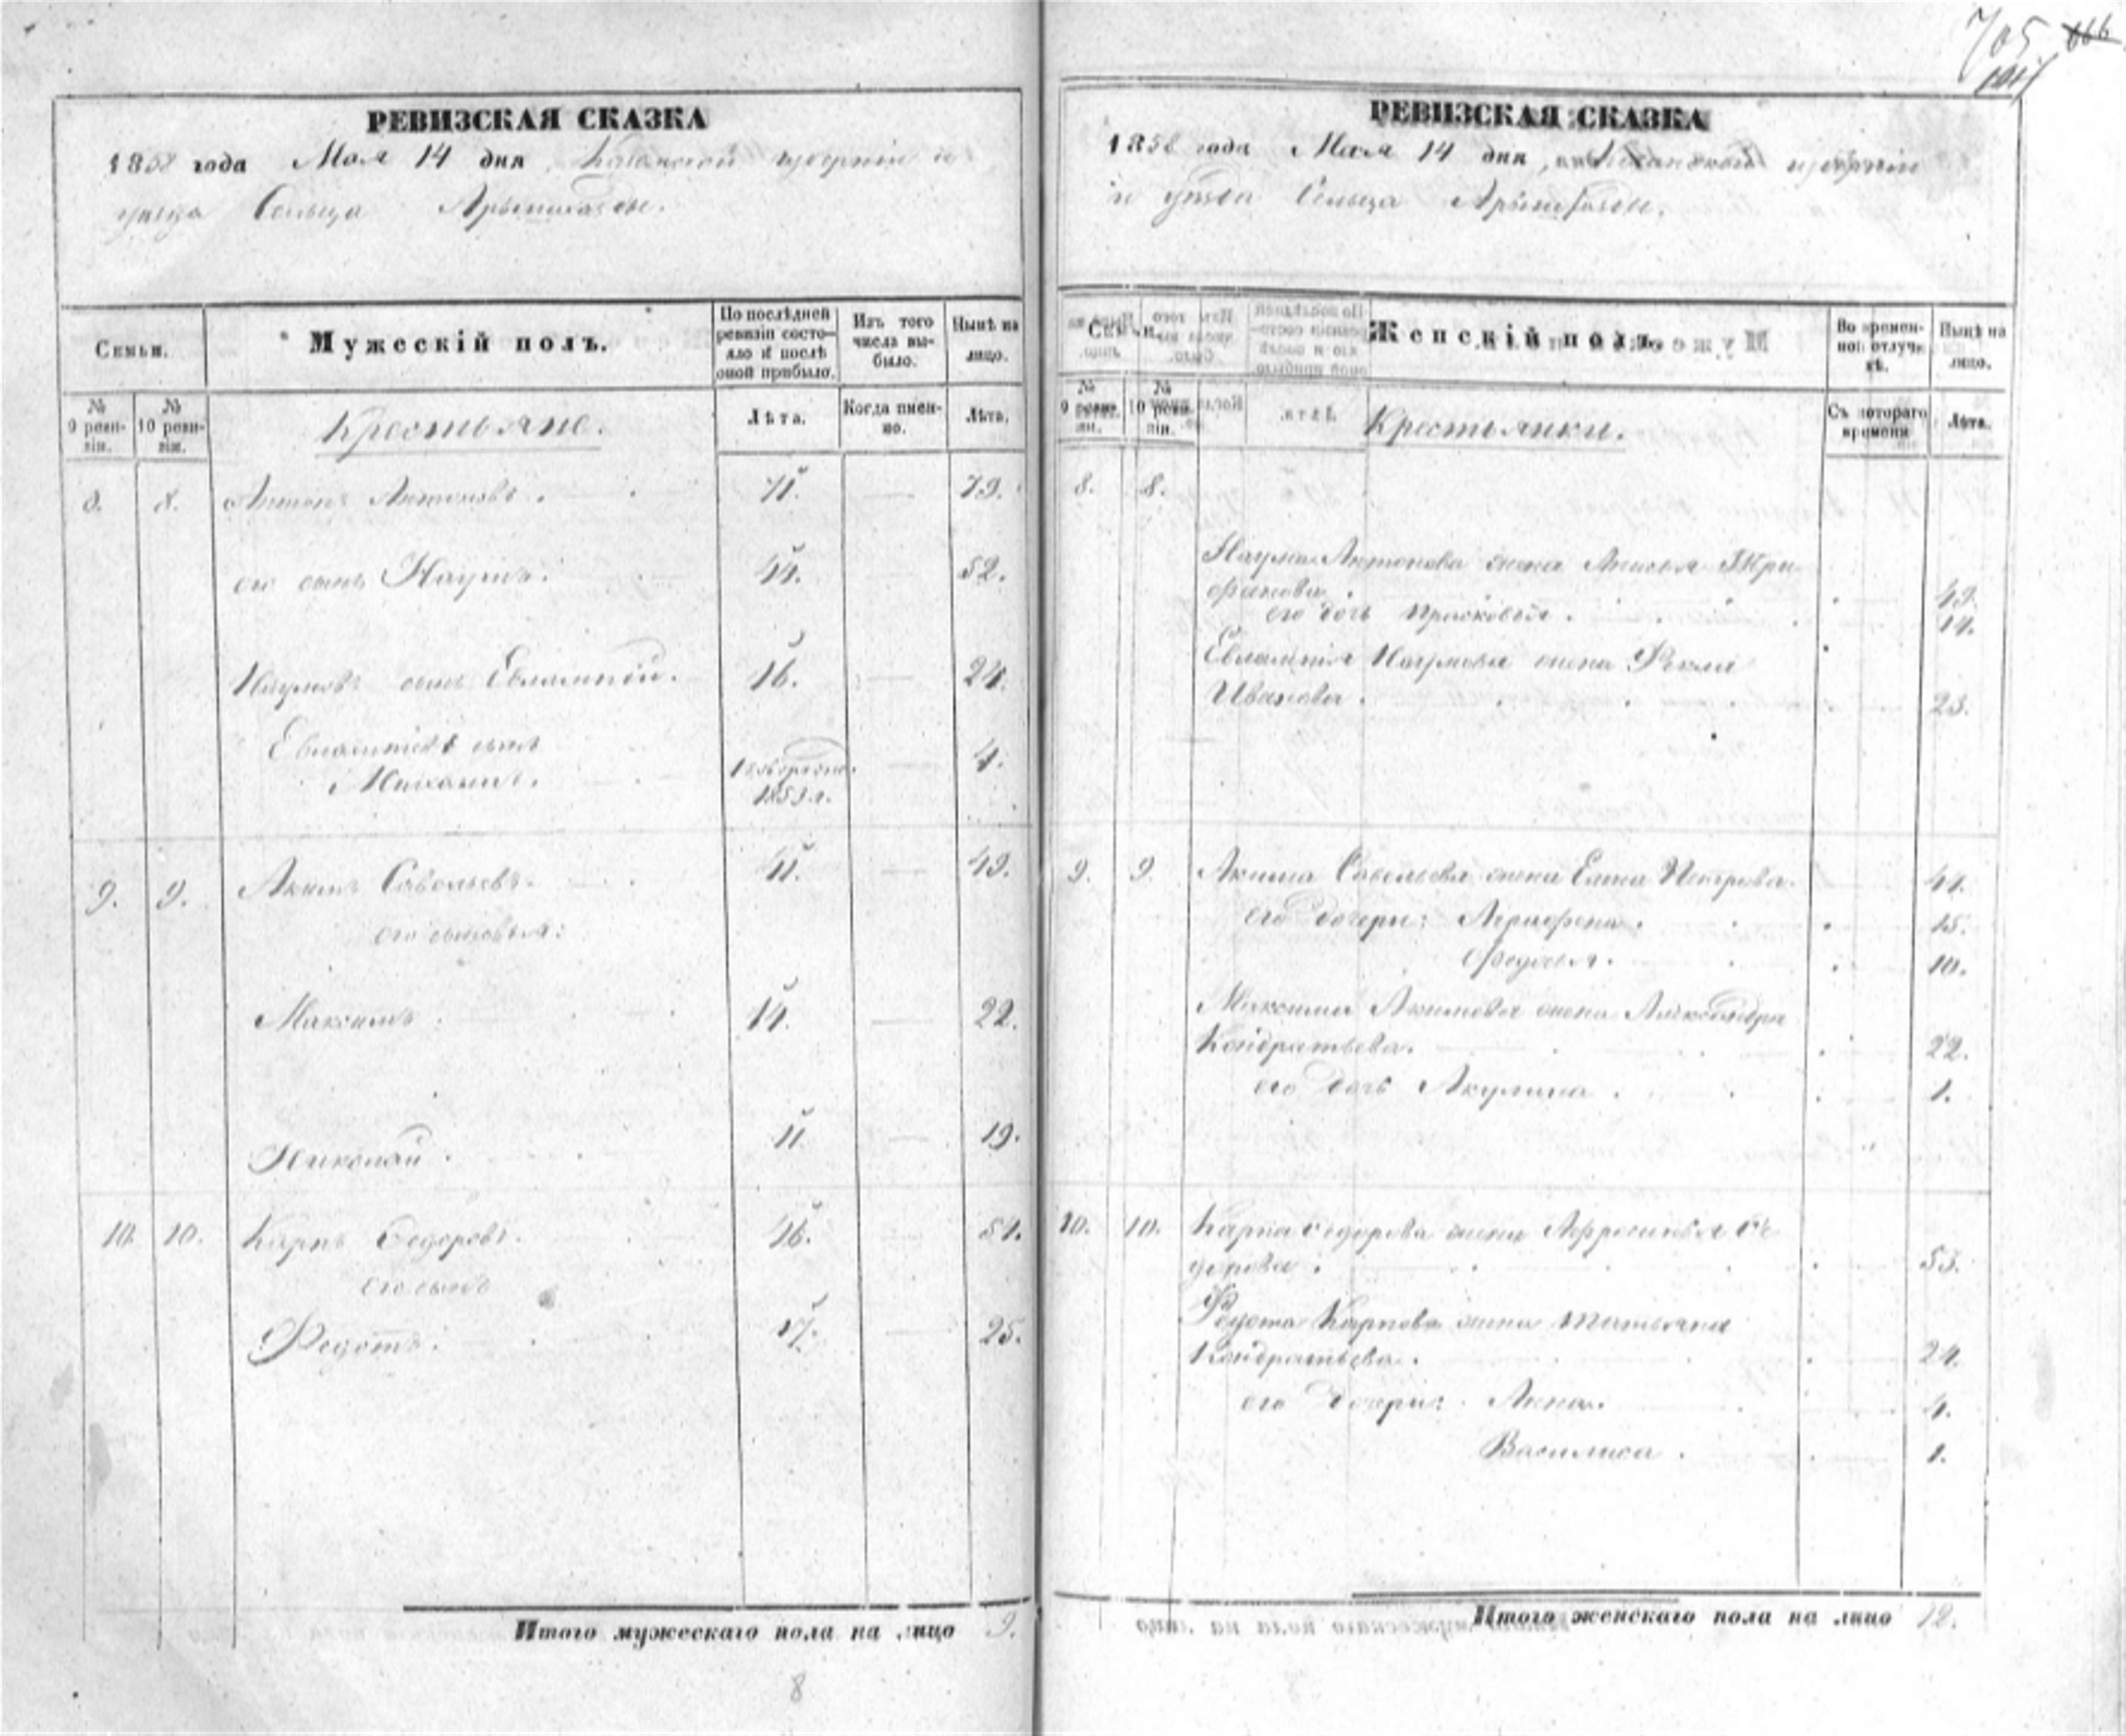 705 666
РЕВИЗСКАЯ СКАЗКА
1858 года Мая 14 дня, Казанской губернии и
уезда Сельца
Семьи.
Мужескій полъ.
По послѣдней ревизіи состо-
яло и послѣ
оной прибыло.
Изъ того
числа вы-
было.
Нынѣ на
лицо.
№
9 реви-
зіи.
№
10 реви-
зіи.
Крестьяне.
Лѣта.
Когда имен-
но.
Лѣта.
8. 8. Антонъ Антоновъ. 71. 79.
его сынъ Наумъ. 44. 52.
Наумовъ сынъ Евлампій. 16. 24.
Евлампіевъ сынъ
Михаилъ. 4.
9. 9. Акимъ Савельевъ. 41. 49.
его сыновья:
Максимъ 14. 22.
Николай. 11 19.
10. 10. Карпъ Ѳедоровъ. 46. 54.
его сынъ
Федотъ. 17. 25.
Итого мужескаго пола на лицо 9.
8
РЕВИЗСКАЯ СКАЗКА
1858 года Мая 14 дня, Казанской губерніи
и уѣзда Сельца
Семьи.
Женскій полъ.
Во времен-
ной отлуч-
кѣ.
Нынѣ на
лицо.
№
9 реви-
зіи.
№
10 реви-
зіи.
Крестьянки.
Съ котораго
времени
Лѣта.
8. 8.
Наума Антонова жена Анисья Три-
фанова. 49.
его дочь Прасковья. 14.
Евлампія Наумова жена Фекла
Иванова. 23.
9. 9. Акима Савельева жена Елена Петрова. 44.
его дочери: Аграфена. 15.
Федосья. 10.
Максима Акимова жена Александра
Кондратьева. 22.
его дочь Акулина. 1.
10. 10. Карпа Ѳедорова жена Афросинья Ѳе-
дорова. 53.
Федота Карпова жена Татьяна
Кондратьева. 24.
его дочери: Анна. 4.
Василиса. 1.
Итого женскаго пола на лицо 12.